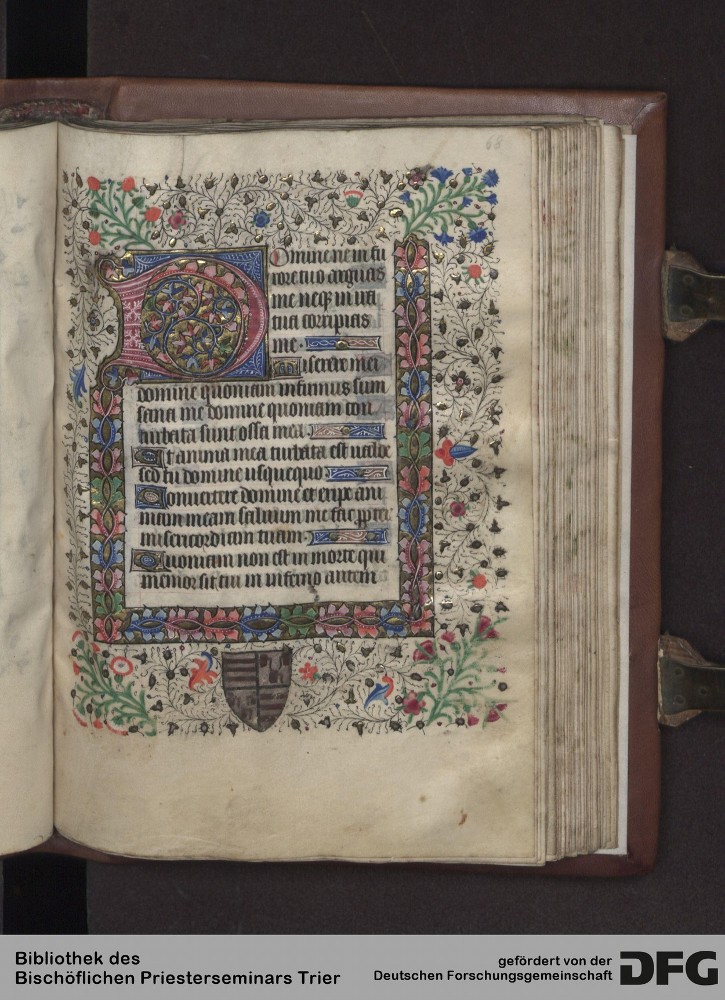 68
Domine ne in fu
rore tuo arguas
me neqz in ira
tua corripias
me.
Miserere mei
domine quoniam infirmus sum
sana me domine quoniam con
turbata sunt ossa mea.
Et anima mea turbata est ualde
sed tu domine usquequo.
Conuertere domine et eripe ani
mam meam saluum me fac ppter
misericordiam tuam.
Quoniam non est in morte qui
memor sit tui in inferno autem
Bibliothek des
Bischöflichen Priesterseminars Trier
gefördert von der
Deutschen Forschungsgemeinschaft
DFG